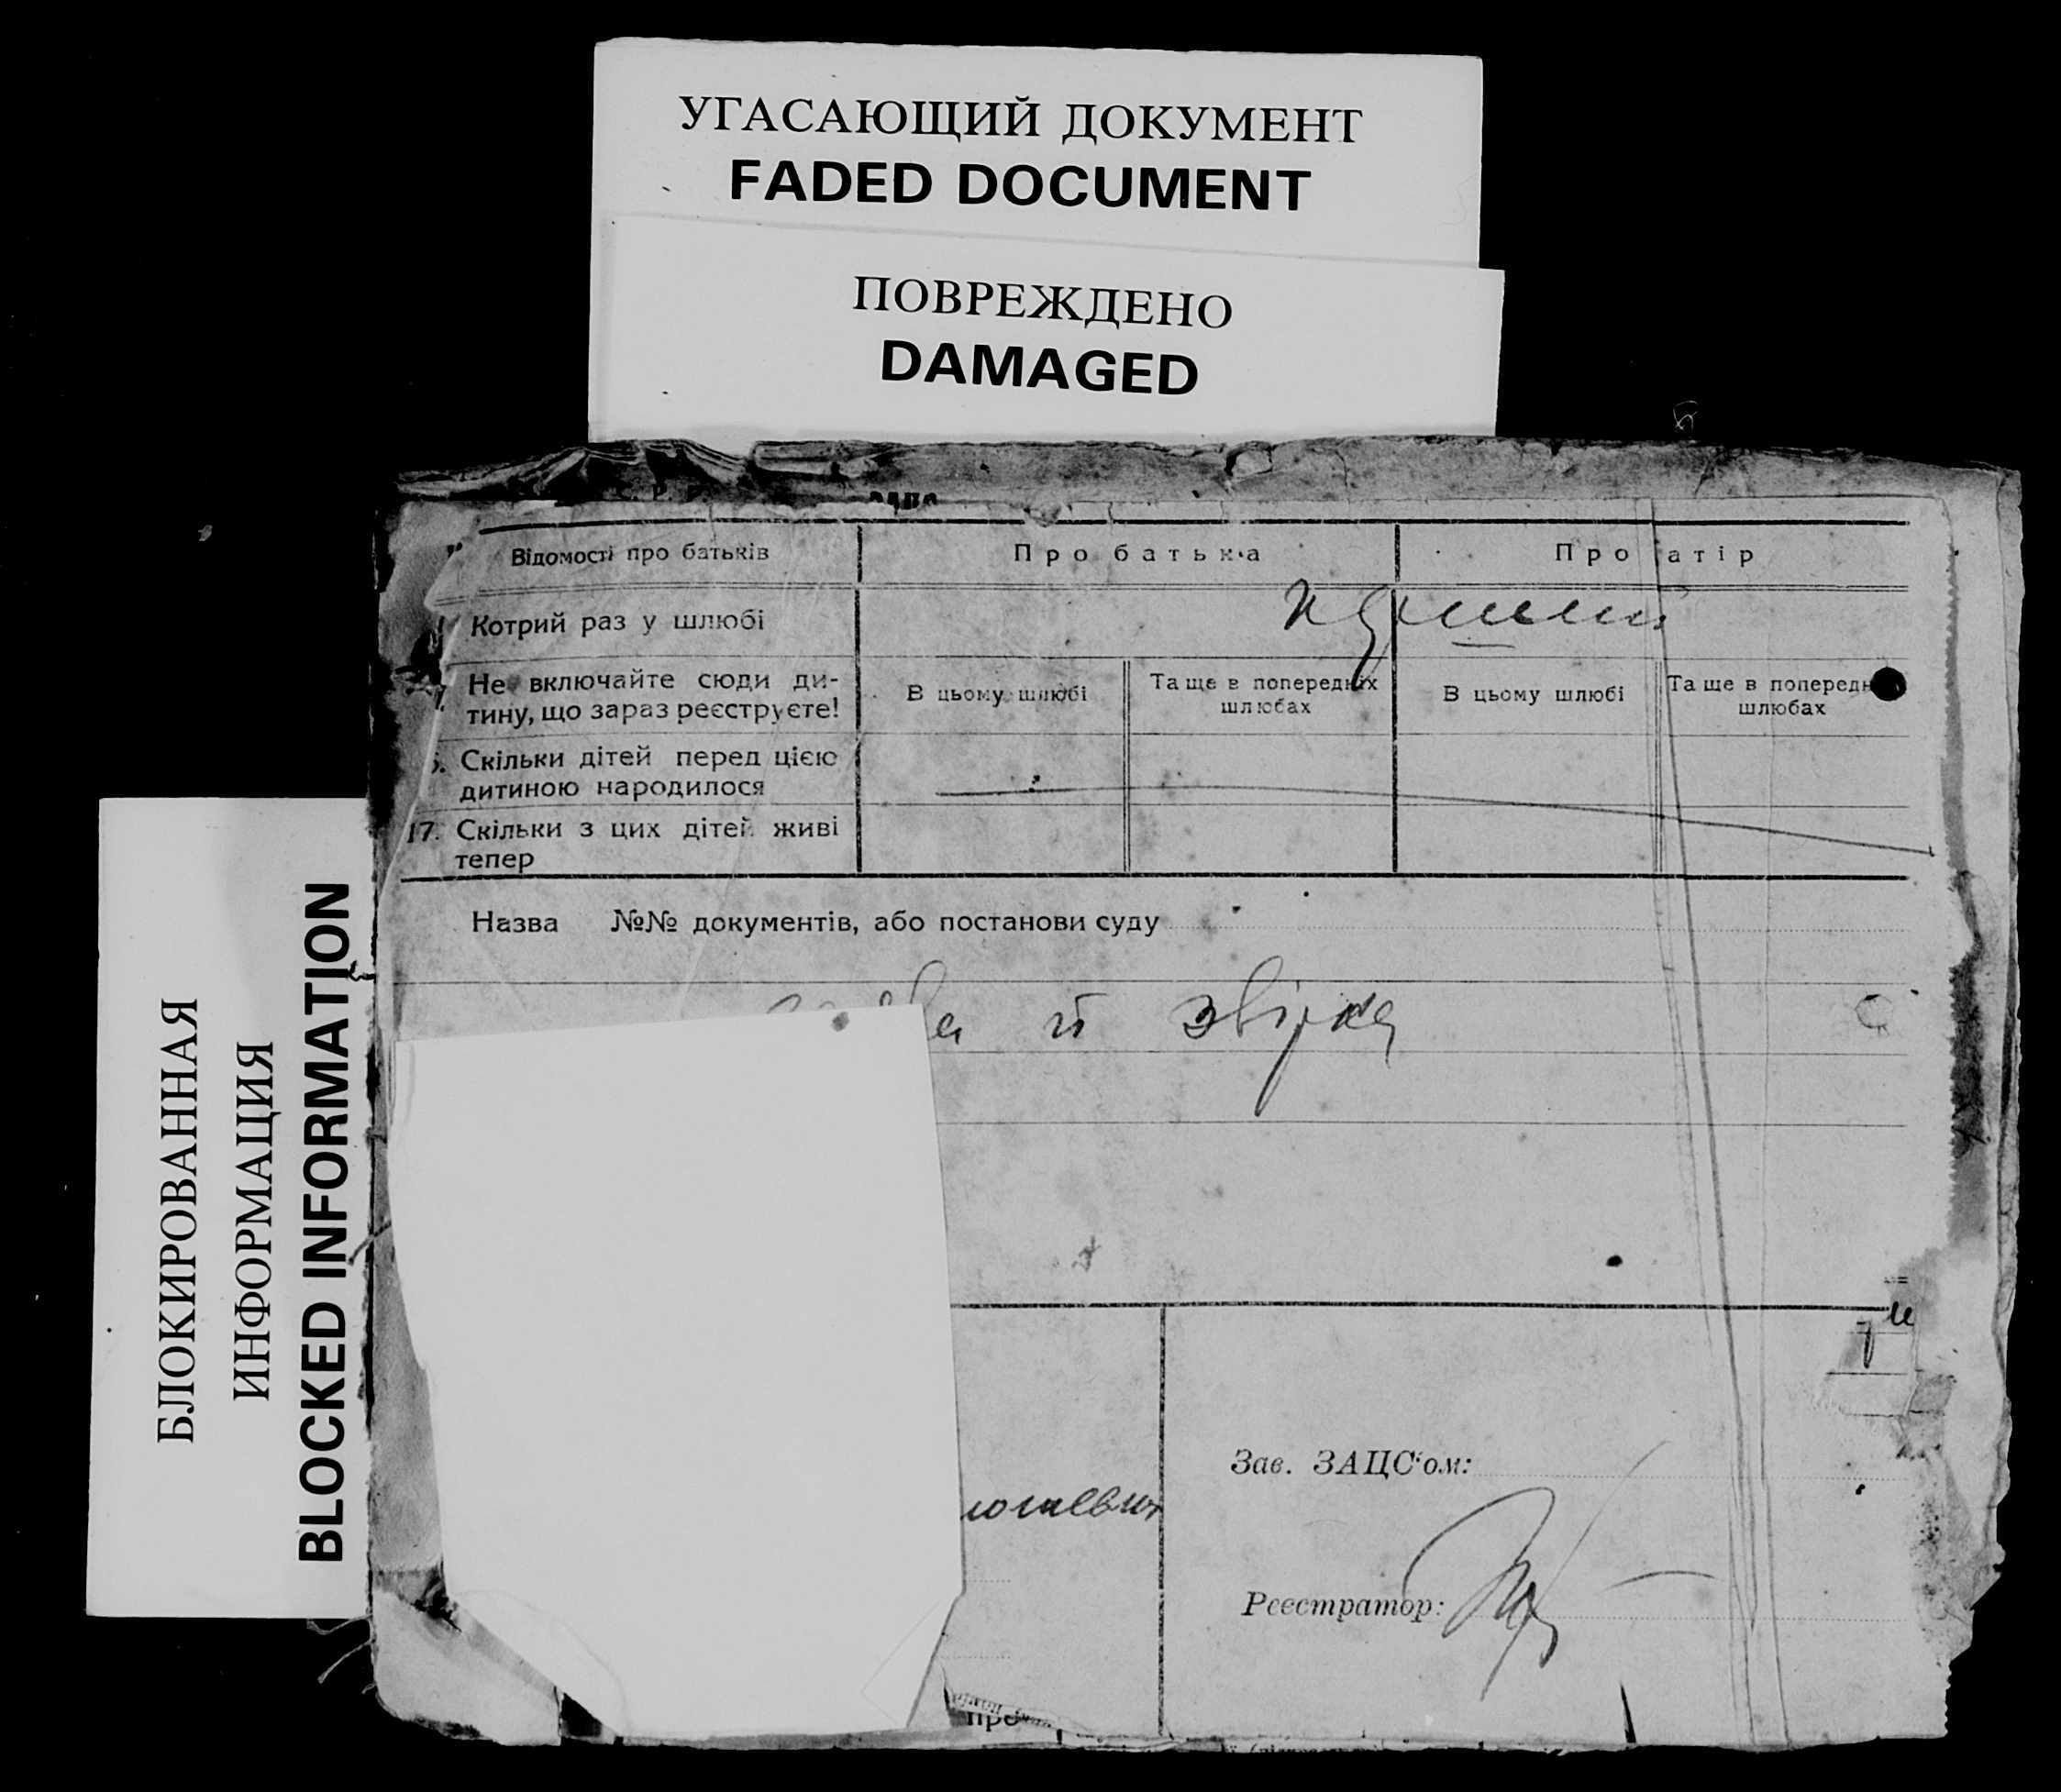 УГАСАЮЩИЙ ДОКУМЕНТ
FADED DOCUMENT
ПОВРЕЖДЕНО
DAMAGED
БЛОКИРОВАННАЯ
ИНФОРМАЦИЯ
BLOCKED INFORMATION
Відомості про батьків Про батька Про атір
Котрий раз у шлюбі
Не включайте сюди ди-
тину, що зараз реєструєте!
В цьому шлюбі Та ще в попередніх
шлюбах
В цьому шлюбі Та ще в поперед
шлюбах
Скільки дітей перед цією
дитиною народилося
17. Скільки з цих дітей живі
тепер
Назва №№ документів, або постанови суду
й звірка
Зав. ЗАЦС'ом:
Реєстратор:
про